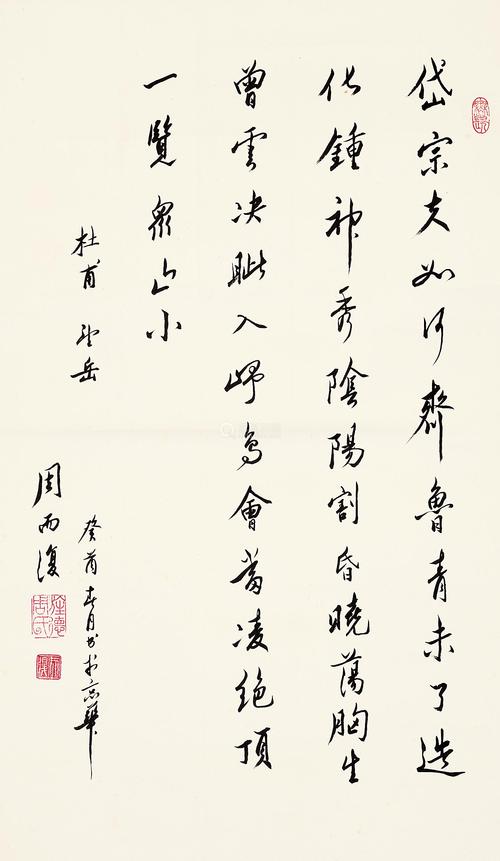 岱宗夫如何齊魯青未了造
化鍾神秀陰陽割昏曉蕩胸生
曾雲决眦入歸鳥會當凌絕頂
一覽衆山小
杜甫 望岳
癸酉春月书於京華
周而復